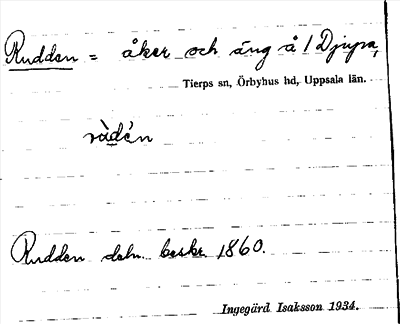 Rudden = åker och äng å 1 Djupa,
Tierps sn, Örbyhus hd, Uppsala län.
rùdén
Rudden deln. beskr. 1860.
Ingegärd Isaksson 1934.